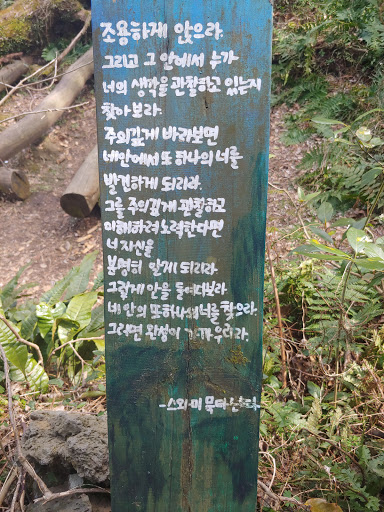 조용하게 앉으라.
그리고 그 안에서 누가
너의 생각을 관찰하고 있는지
찾아보라.
주의깊게 바라보면
네안에서 또 하나의 너를
발견하게 되리라.
그를 주의깊게 관찰하고
이해하려 노력한다면
너 자신을
분명히 알게 되리라
그렇게 안을 들여다보라
네 안의 또하나의 너를 찾으라.
그러면 완성이 가까우리라.
-스와미 묵타난다-